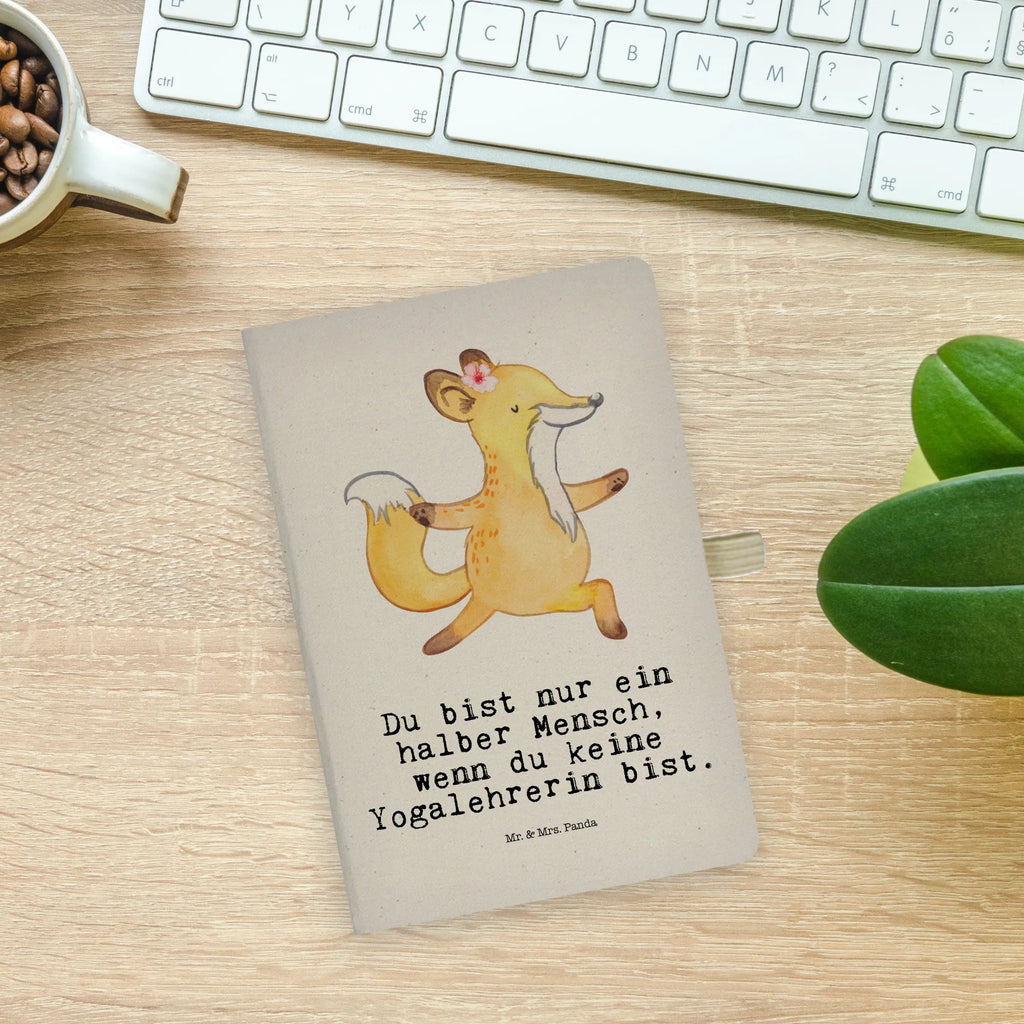 \ Y X C V B N M ? < : > – -
ctrl alt ⌥ cmd ⌘ ⌘ cmd
J K L “ õ ; §
Du bist nur ein
halber Mensch,
wenn du keine
Yogalehrerin bist.
Mr. & Mrs. Panda